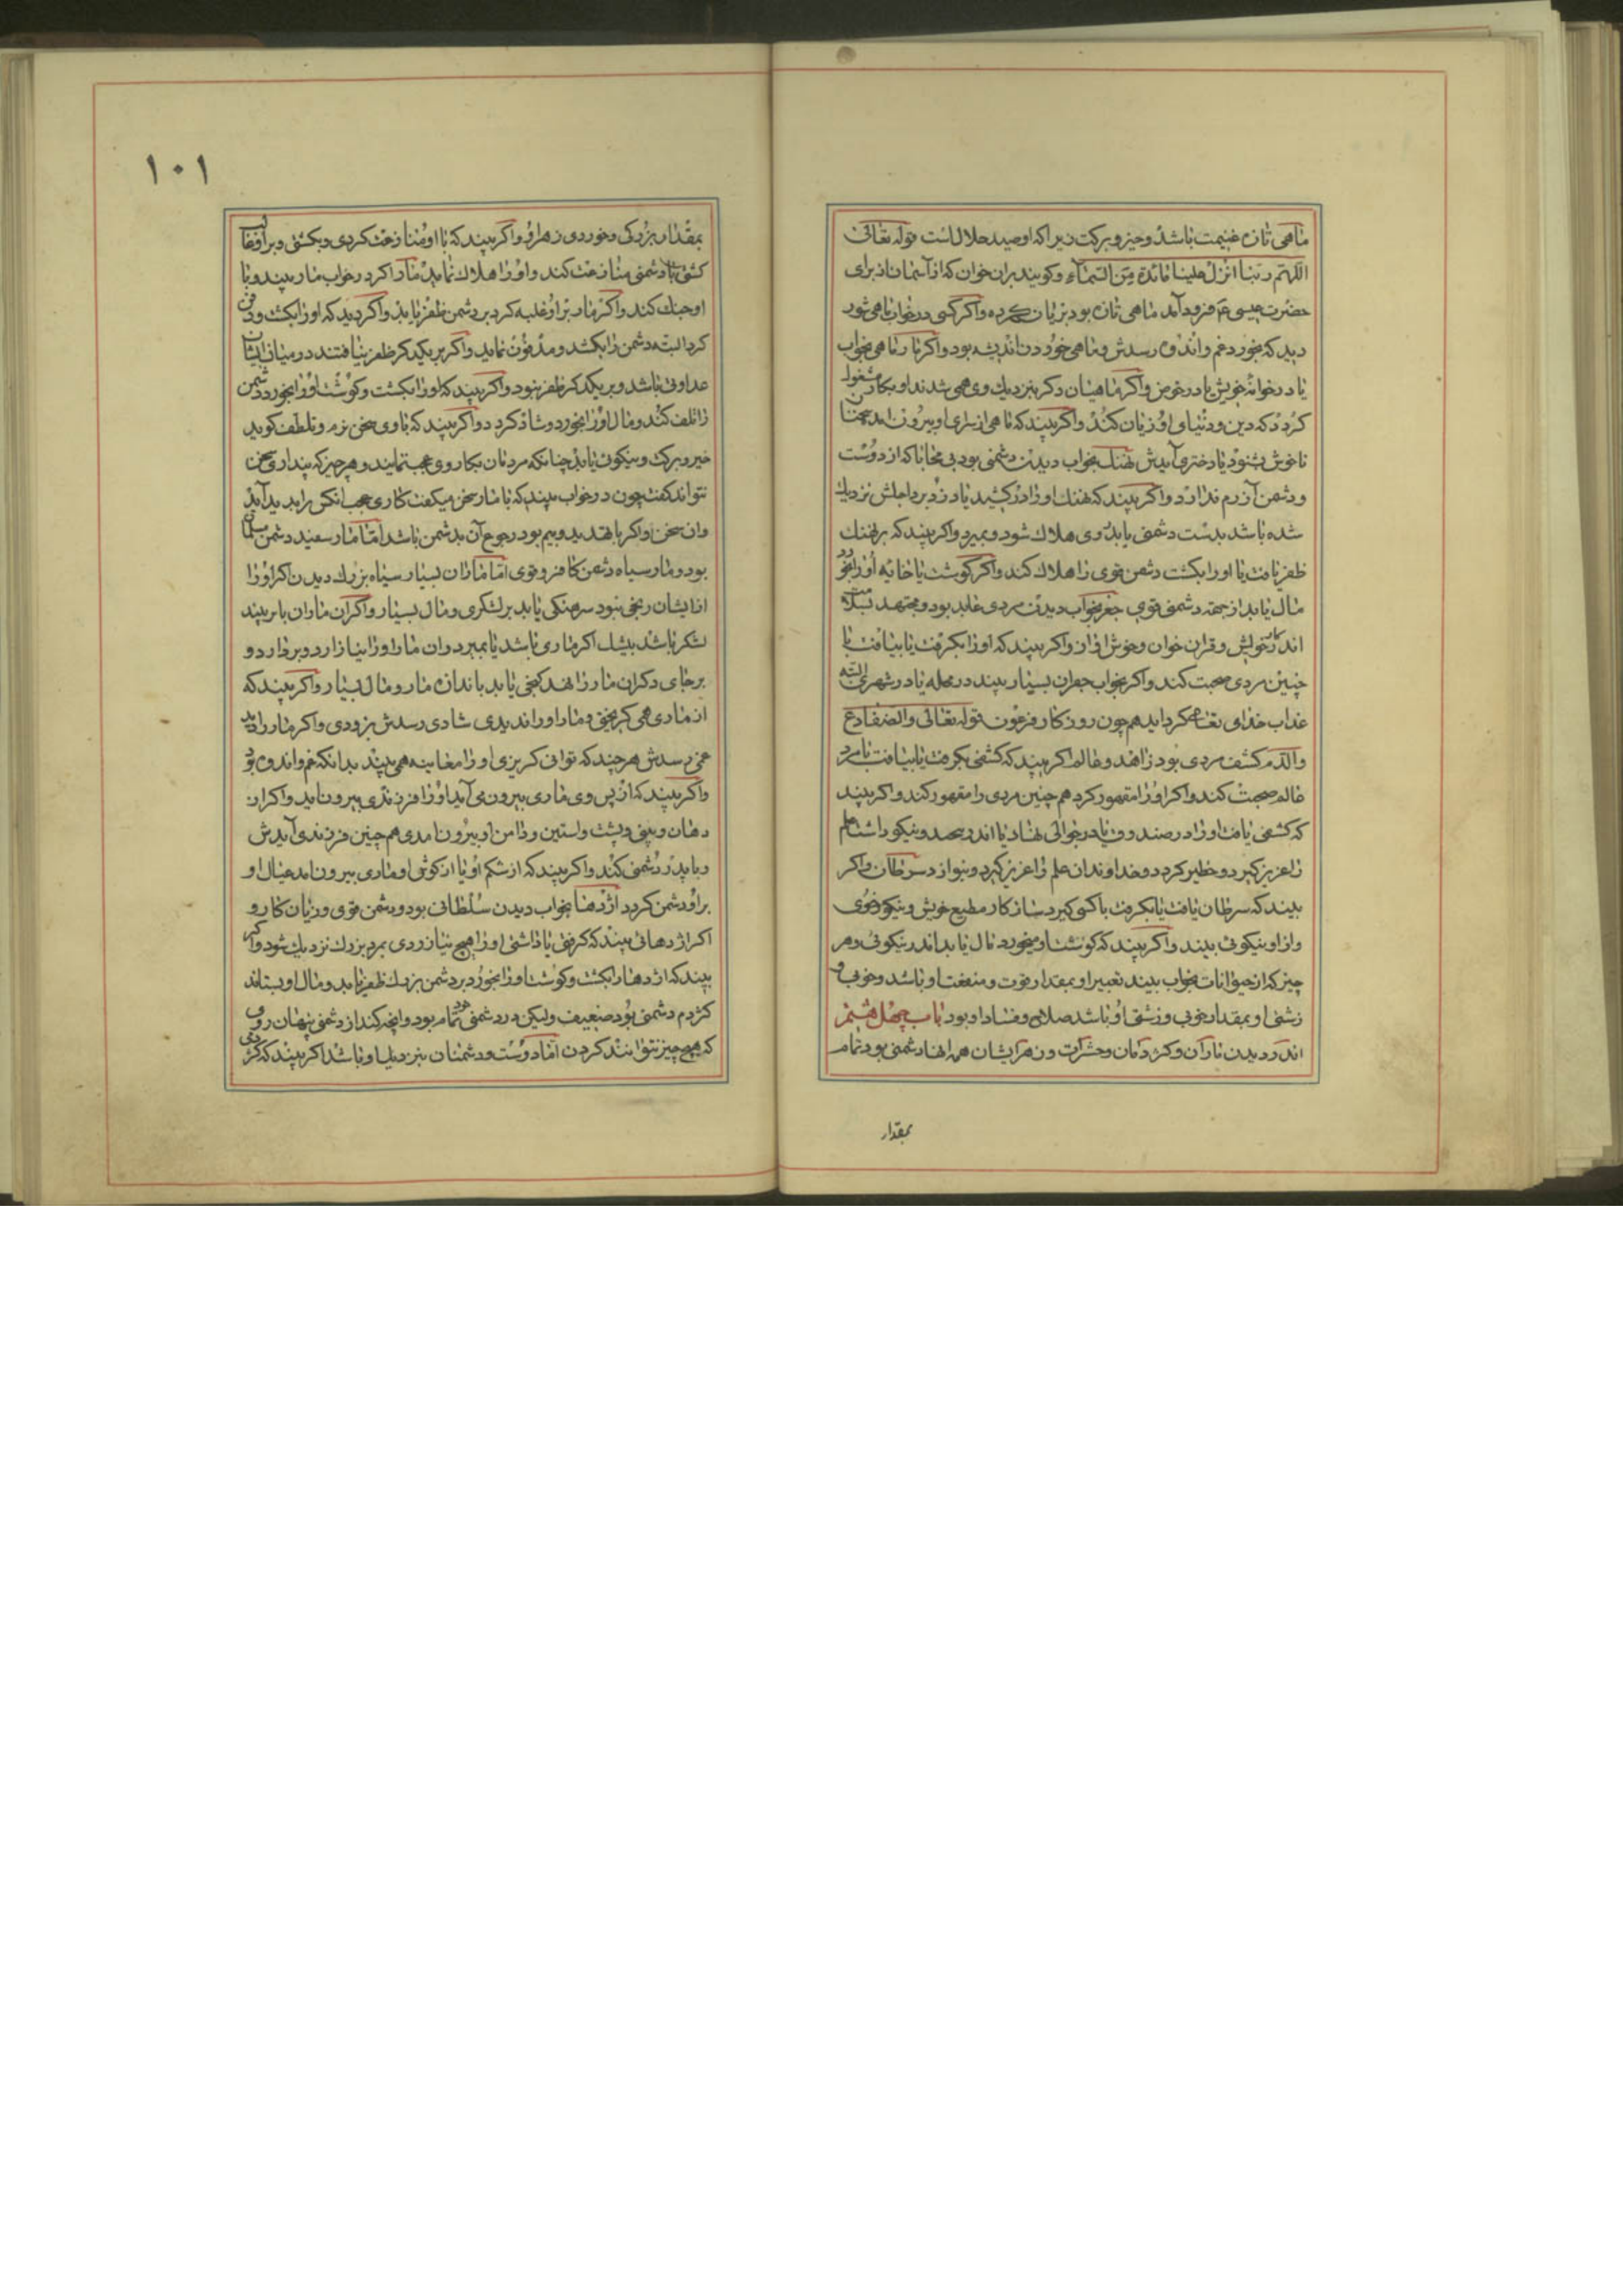 ماهی تازه غنیمت باشد و خیر و برکت زیرا که او صید حلال است قوله تعالی
اللهم ربنا انزل علینا مائدة من السماء و کویند بران خوان که از آسمان از برای
حضرت عیسی ع فرود آمد ماهی تازه بود بریان کرده و اکر کسی در خواب ماهی شور
دید که بخورد غم و اندوه رسدش و ماهی خوردن اندیشه بود و اکر مار ماهی بخواب
یا در خوانهٔ خویش یا در حوض و اکر ماهیان دکر بنزدیك وی همی شدند او بکار مشغول
کردد که دین و دنیای او زیان کند و اکر بیند که ماهی از او بیرون امد سخن
ناخوش بشنود یا دختری آیدش نهنك بخواب دیدن دشمنی بود بی محابا که از دوست
و دشمن آزرم ندارد و اکر بیند که نهنك او را در کشید یا دزدید اجلش نزدیك
شده باشد بدست دشمنی یا بد وی هلاك شود و بمیرد و اکر بیند که بر نهنك
ظفر یافت یا او را بکشت دشمن قوی را هلاك کند و اکر کوشت یا خایه او را بخورد
مال یابد از جهة دشمنی قوی جغر بخواب دیدن مردی عابد بود و مجتهد
اندر کار خویش و قران خوان و خوش اواز و اکر بیند که او را بکرفت یا بیافت با
چنین مردی صحبت کند و اکر بخواب جغران بسیار بیند در محله یا در شهری
عذاب خدای تعالی همچون روزکار فرعون قوله تعالی والضفادع
والدم کشف مردی بود زاهد و عالم اکر بیند که کشفی بکرفت یا بیافت با مرد
عالم صحبت کند و اکر او را مقهور کرد هم چنین مردی را مقهور کند و اکر بیند
که کشفی یافت او را در صندوق یا در خوالی نهاد یا اندر مهد و نیکو داشت علم
را عزیز کیرد و خطیر کردد و خداوندان علم را عزیز کیرد و بنوازد سرطان و اکر
بیند که سرطان یافت یا بکرفت با کسی کیرد ساز کار مطیع خویش و نیکو خوی
و از او نیکوئی بیند و اکر بیند که کوشت او میخورد مال یابد اندر نیکوئی و هر
چیز که از حیوانات بخواب بیند تعبیر او بمقدار قوت و منفعت او باشد و خوبی و
زشتی او بمقدار خوبی و زشتی او باشد صلاح و فساد او بود باب چهل هشتم
اندر دیدن ماران و کژدمان و حشرات و زهر ایشان همه انها دشمنی بود تمام
بمقدار
۱۰۱
بمقدار بزرکی و خوردی زهر او و اکر بیند که با او منازعت کردی و بکشتی و بر او غالب
کشتی با دشمنی منازعت کند و او را هلاك نماید مار اکر در خواب مار بیند و با
او جنك کند و اکر مار بر او غلبه کرد بر دشمن ظفر یابد و اکر دید که او را بکشت و دفن
کرد البته دشمن را بکشد و مدفون نماید و اکر بر یکدیکر ظفر نیافتند در میان ایشان
عداوتی باشد و بر یکدیکر ظفر نبود و اکر بیند که او را بکشت و کوشت او را بخورد دشمن
را تلف کند و مال او را بخورد و شاد کردد و اکر بیند که با وی سخن نرم و تلطف کوید
خیر و برکت و نیکوئی یابد چنانکه مردمان بکار وی عجب نمایند و هر چیز که پنداری سخن
نتواند کفت چون در خواب بیند که با مار سخن میکفت کاری عجب انکس را پدید آید
و ان سخن و اکر با تهدید و بیم بود رجوع آن بدشمن باشد اما مار سفید دشمن
بود و مار سیاه دشمن کافر و قوی اما ماران بسیار سیاه بزرك دیدن اکر او را
از ایشان رنجی نبود سرهنکی یابد بر لشکری و مال بسیار و اکر ان ماران با بر بیند
لشکر باشد بیشك اکر ماری باشد یا بمیرد و ان مار او را نیازارد و بردارد و
بر جای دکر ان مار را نهد کنجی یابد باندازه مار و مال بسیار و اکر بیند که
از ماری همی کریختی و مار او را ندیدی شادی رسدش بزودی و اکر مار را دید
غمی رسدش هر چند که توانی کریزی او را معاینه همی بیند بدانکه غم و اندوه بود
و اکر بیند که از پس وی ماری بیرون می آید او را فرزندی بیرون اید و اکر از
دهان و بینی و پشت و استین و دامن او بیرون امدی هم چنین فرزندی آیدش
و با پدر دشمنی کند و اکر بیند که از شکم او یا از کوش او ماری بیرون امد عیال او
بر او دشمن کردد اژدها بخواب دیدن سلطانی بود و دشمن قوی و زیان کار و
اکر اژدهائی بیند که کرفتی یا داشتی او را هیچ نیازردی بمرد بزرك نزدیك شود و اکر
بیند که اژدها را بکشت و کوشت او را بخورد بر دشمن بزرك ظفر یابد و مال او بستاند
کژدم دشمنی بود ضعیف ولیکن در دشمنی خود تمام بود و انچه کند از دشمنی پنهان روی
که هیچ چیز نتوانند کردن اما دوست و دشمنان بنزدیك او باشد اکر بیند که کژدمی